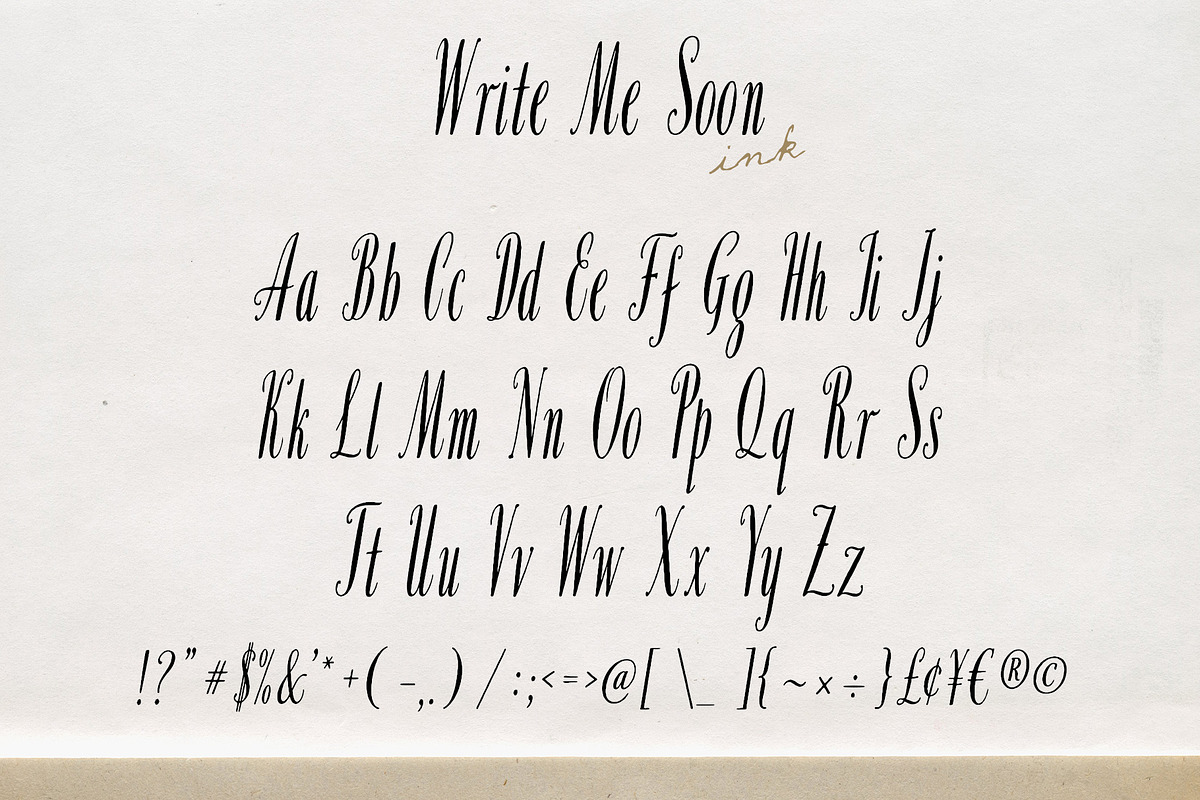 Write Me Soon
ink
Aa Bb Cc Dd Ee Ff Gg Hh Ii Jj
Kk Ll Mm Nn Oo Pp Qq Rr Ss
Tt Uu Vv Ww Xx Yy Zz
!?" #$%&'*+( -,.) / :;<=>@[ \_ ]{ ~×÷}£¢¥€®©